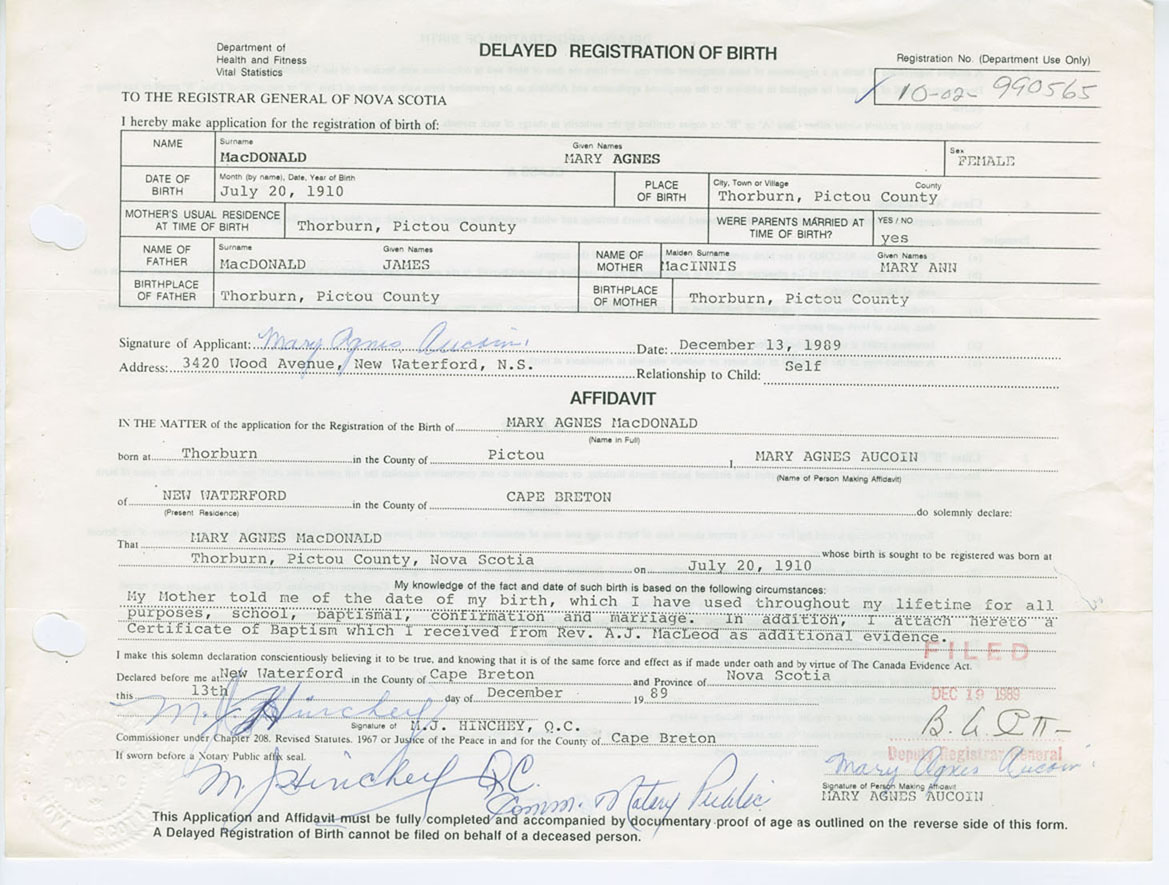 Department of
Health and Fitness
Vital Statistics
DELAYED REGISTRATION OF BIRTH
Registration No. (Department Use Only)
10-02- 990565
TO THE REGISTRAR GENERAL OF NOVA SCOTIA
I hereby make application for the registration of birth of:
NAME Surname MacDONALD Given Names MARY AGNES Sex FEMALE
DATE OF BIRTH Month (by name), Date, Year of Birth July 20, 1910 PLACE OF BIRTH City, Town or Village County Thorburn, Pictou County
MOTHER'S USUAL RESIDENCE AT TIME OF BIRTH Thorburn, Pictou County WERE PARENTS MARRIED AT TIME OF BIRTH? YES / NO yes
NAME OF FATHER Surname MacDONALD Given Names JAMES NAME OF MOTHER Maiden Surname MacINNIS Given Names MARY ANN
BIRTHPLACE OF FATHER Thorburn, Pictou County BIRTHPLACE OF MOTHER Thorburn, Pictou County
Signature of Applicant: Mary Agnes Aucoin Date: December 13, 1989
Address: 3420 Wood Avenue, New Waterford, N.S. Relationship to Child: Self
AFFIDAVIT
IN THE MATTER of the application for the Registration of the Birth of MARY AGNES MacDONALD
(Name in Full)
born at Thorburn in the County of Pictou I, MARY AGNES AUCOIN
(Name of Person Making Affidavit)
of NEW WATERFORD in the County of CAPE BRETON do solemnly declare:
(Present Residence)
That MARY AGNES MacDONALD whose birth is sought to be registered was born at
Thorburn, Pictou County, Nova Scotia on July 20, 1910
My knowledge of the fact and date of such birth is based on the following circumstances:
My Mother told me of the date of my birth, which I have used throughout my lifetime for all
purposes, school, baptismal, confirmation and marriage. In addition, I attach hereto a
Certificate of Baptism which I received from Rev. A.J. MacLeod as additional evidence.
FILED
I make this solemn declaration conscientiously believing it to be true, and knowing that it is of the same force and effect as if made under oath and by virtue of The Canada Evidence Act.
Declared before me at New Waterford in the County of Cape Breton and Province of Nova Scotia
this 13th day of December 19 89
DEC 19 1989
M. J. Hinchey
Signature of M.J. HINCHEY, Q.C.
Commissioner under Chapter 208. Revised Statutes. 1967 or Justice of the Peace in and for the County of Cape Breton
Deputy Registrar General
If sworn before a Notary Public affix seal.
M. J Hinchey QC.
Comm. Notary Public
Mary Agnes Aucoin
Signature of Person Making Affidavit
MARY AGNES AUCOIN
This Application and Affidavit must be fully completed and accompanied by documentary proof of age as outlined on the reverse side of this form.
A Delayed Registration of Birth cannot be filed on behalf of a deceased person.